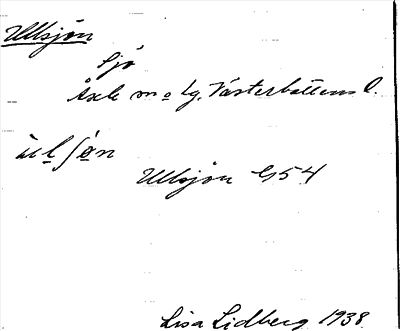 Ullsjön
Sjö
Åsele m o lg. Västerbottens l.
Ullsjön G54
Lisa Lidberg 1938